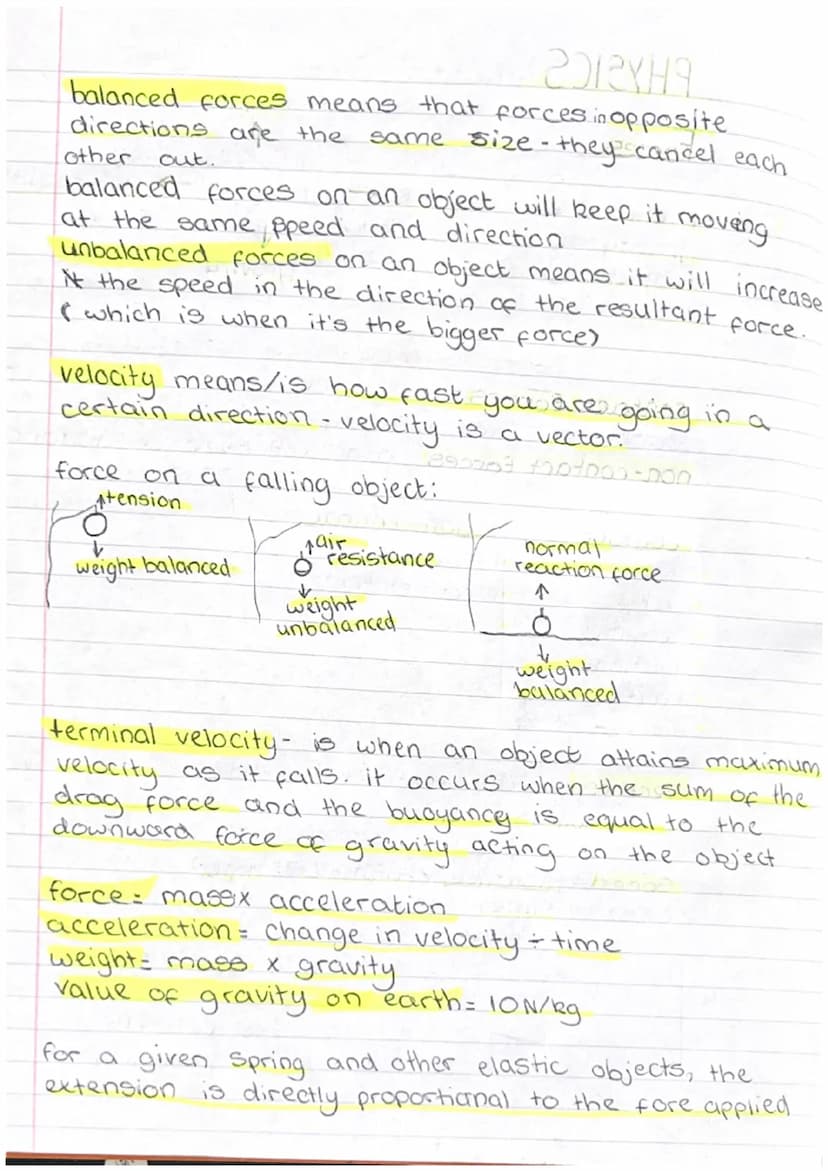 PHYSICS
balanced forces means that forces in opposite
directions are the same size - they cancel each
other out.
balanced forces on an object will keep it moving
at the same speed and direction
unbalanced forces on an object means it will increase
the speed in the direction of the resultant force.
(which is when it's the bigger force)
velocity means/is how fast you are going in a
certain direction - velocity is a vector.
non-contact forces
force on a falling object:
↑tension
↓
weight balanced
↑air
resistance
↓
weight
unbalanced
normal
reaction force
↑
↓
weight
balanced
terminal velocity - is when an object attains maximum
velocity as it falls. it occurs when the sum of the
drag force and the buoyancy is equal to the
downward force of gravity acting on the object
force = mass x acceleration
acceleration = change in velocity ÷ time
weight = mass x gravity
value of gravity on earth = 10N/kg
for a given spring and other elastic objects, the
extension is directly proportional to the fore applied